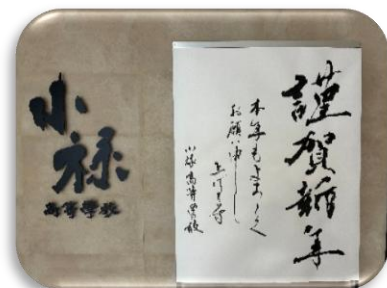 小禄
高等学校
謹賀新年
本年もよろしく
お願い申し
上げます
小禄高等学校